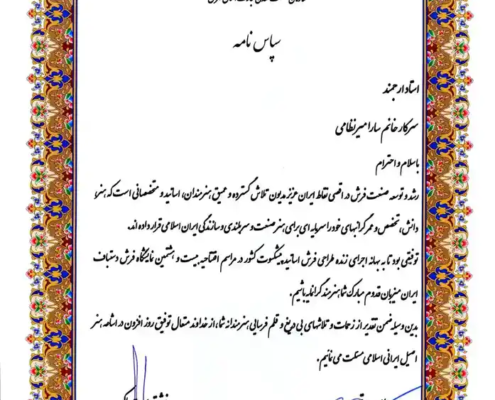 سپاس نامه
استاد ارجمند
سرکار خانم سارا میرنظامی
با سلام و احترام
رشد و توسعه صنعت فرش در اقصی نقاط ایران عزیز مدیون تلاش گسترده و عمیق هنرمندان، اساتید و متخصصانی است که هنر،
دانش، تخصص و عمر گرانبهای خود را سرمایه ای برای هنر صنعت و سربلندی و سازندگی ایران اسلامی قرار داده اند.
توفیقی بود تا به بهانه اجرای زنده طراحی فرش اساتید پیشکسوت کشور در مراسم افتتاحیه بیست و هشتمین نمایشگاه فرش دستباف
ایران میزبان قدوم مبارک شما هنرمند گرانمایه باشیم.
بدین وسیله ضمن تقدیر از زحمات و تلاشهای بی دریغ و قلم فرسایی هنرمندانه شما، از خداوند متعال توفیق روز افزون در اشاعه هنر
اصیل ایرانی اسلامی مسئلت می نمایم.